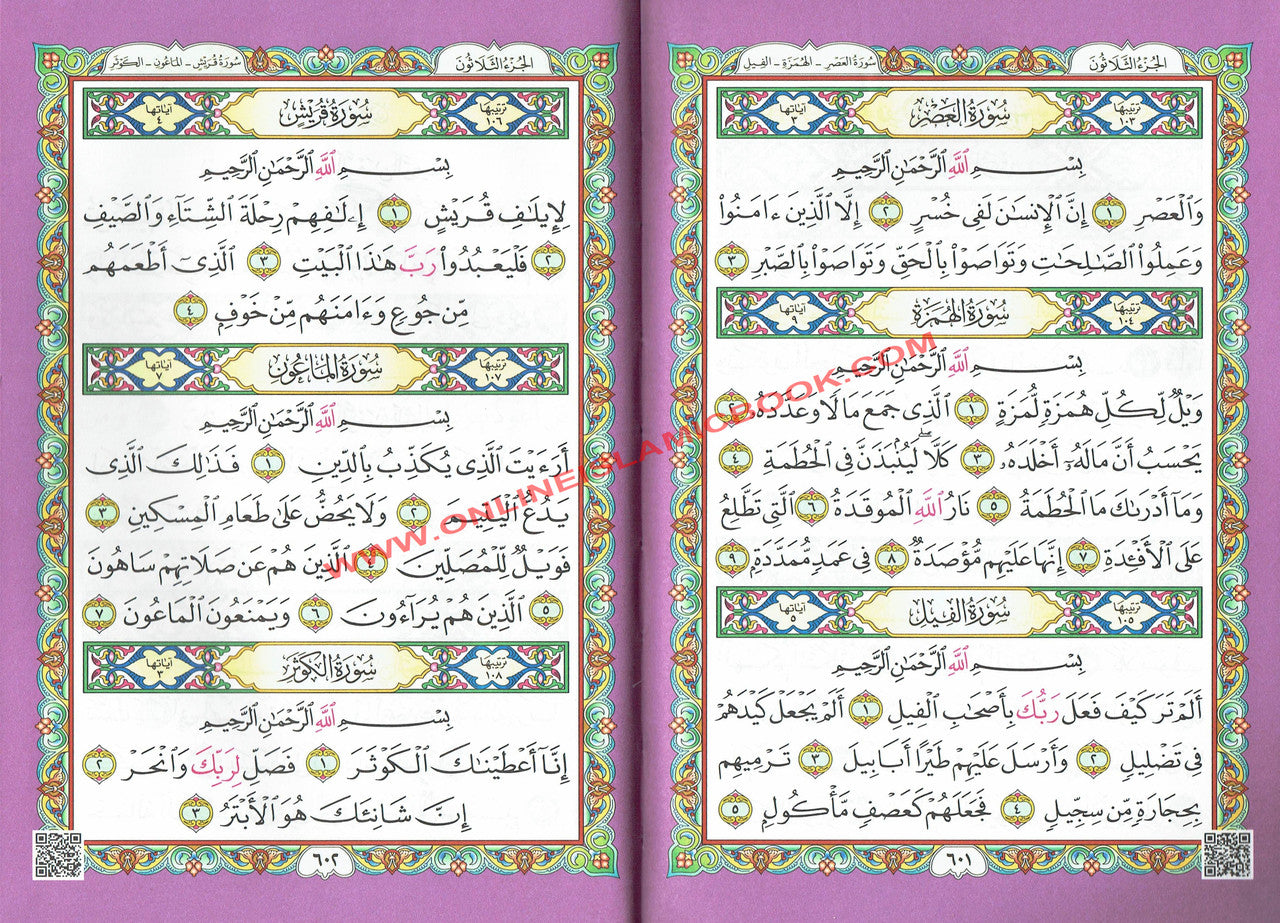 الجزء الثلاثون
سورة العصر - الهمزة - الفيل
ترتيبها ١٠٣ سُورَةُ العَصْرِ آياتها ٣
بِسْمِ اللَّهِ الرَّحْمَٰنِ الرَّحِيمِ
وَالْعَصْرِ ١ إِنَّ الْإِنسَانَ لَفِي خُسْرٍ ٢ إِلَّا الَّذِينَ ءَامَنُوا
وَعَمِلُوا الصَّالِحَاتِ وَتَوَاصَوْا بِالْحَقِّ وَتَوَاصَوْا بِالصَّبْرِ ٣
ترتيبها ١٠٤ سُورَةُ الهُمَزَةِ آياتها ٩
بِسْمِ اللَّهِ الرَّحْمَٰنِ الرَّحِيمِ
وَيْلٌ لِّكُلِّ هُمَزَةٍ لُّمَزَةٍ ١ الَّذِي جَمَعَ مَالًا وَعَدَّدَهُ ٢
يَحْسَبُ أَنَّ مَالَهُ أَخْلَدَهُ ٣ كَلَّا لَيُنبَذَنَّ فِي الْحُطَمَةِ ٤
وَمَا أَدْرَىٰكَ مَا الْحُطَمَةُ ٥ نَارُ اللَّهِ الْمُوقَدَةُ ٦ الَّتِي تَطَّلِعُ
عَلَى الْأَفْئِدَةِ ٧ إِنَّهَا عَلَيْهِم مُّؤْصَدَةٌ ٨ فِي عَمَدٍ مُّمَدَّدَةٍ ٩
ترتيبها ١٠٥ سُورَةُ الفِيلِ آياتها ٥
بِسْمِ اللَّهِ الرَّحْمَٰنِ الرَّحِيمِ
أَلَمْ تَرَ كَيْفَ فَعَلَ رَبُّكَ بِأَصْحَابِ الْفِيلِ ١ أَلَمْ يَجْعَلْ كَيْدَهُمْ
فِي تَضْلِيلٍ ٢ وَأَرْسَلَ عَلَيْهِمْ طَيْرًا أَبَابِيلَ ٣ تَرْمِيهِم
بِحِجَارَةٍ مِّن سِجِّيلٍ ٤ فَجَعَلَهُمْ كَعَصْفٍ مَّأْكُولٍ ٥
٦٠١
الجزء الثلاثون
سورة قريش - الماعون - الكوثر
ترتيبها ١٠٦ سُورَةُ قُرَيْشٍ آياتها ٤
بِسْمِ اللَّهِ الرَّحْمَٰنِ الرَّحِيمِ
لِإِيلَافِ قُرَيْشٍ ١ إِۦلَافِهِمْ رِحْلَةَ الشِّتَاءِ وَالصَّيْفِ
٢ فَلْيَعْبُدُوا رَبَّ هَٰذَا الْبَيْتِ ٣ الَّذِي أَطْعَمَهُم
مِّن جُوعٍ وَءَامَنَهُم مِّنْ خَوْفٍ ٤
ترتيبها ١٠٧ سُورَةُ المَاعُونِ آياتها ٧
بِسْمِ اللَّهِ الرَّحْمَٰنِ الرَّحِيمِ
أَرَءَيْتَ الَّذِي يُكَذِّبُ بِالدِّينِ ١ فَذَٰلِكَ الَّذِي
يَدُعُّ الْيَتِيمَ ٢ وَلَا يَحُضُّ عَلَىٰ طَعَامِ الْمِسْكِينِ ٣
فَوَيْلٌ لِّلْمُصَلِّينَ ٤ الَّذِينَ هُمْ عَن صَلَاتِهِمْ سَاهُونَ
٥ الَّذِينَ هُمْ يُرَاءُونَ ٦ وَيَمْنَعُونَ الْمَاعُونَ ٧
ترتيبها ١٠٨ سُورَةُ الكَوْثَرِ آياتها ٣
بِسْمِ اللَّهِ الرَّحْمَٰنِ الرَّحِيمِ
إِنَّا أَعْطَيْنَاكَ الْكَوْثَرَ ١ فَصَلِّ لِرَبِّكَ وَانْحَرْ ٢
إِنَّ شَانِئَكَ هُوَ الْأَبْتَرُ ٣
٦٠٢
WWW.ONLINEISLAMICBOOK.COM